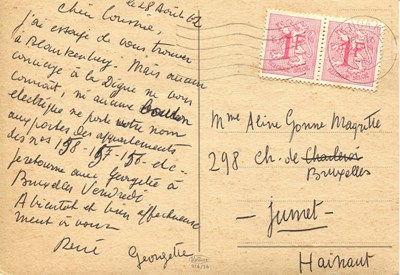 le 18 Août 62
Chère Cousine,
j'ai essayé de vous trouver
à Blankenberg. Mais aucun
concierge à la Digue ne vous
connait, ni aucun bouton
électrique ne porte votre nom
aux portes des appartements
des nos 158 - 157 - 156 -
je retourne avec Georgette à
Bruxelles Vendredi
A bientôt et bien affectueuse
ment à vous
René
Georgette
1F
1F
Mme Aline Gonne Magritte
298 ch. de Charleroi
Bruxelles
- Jumet -
Hainaut